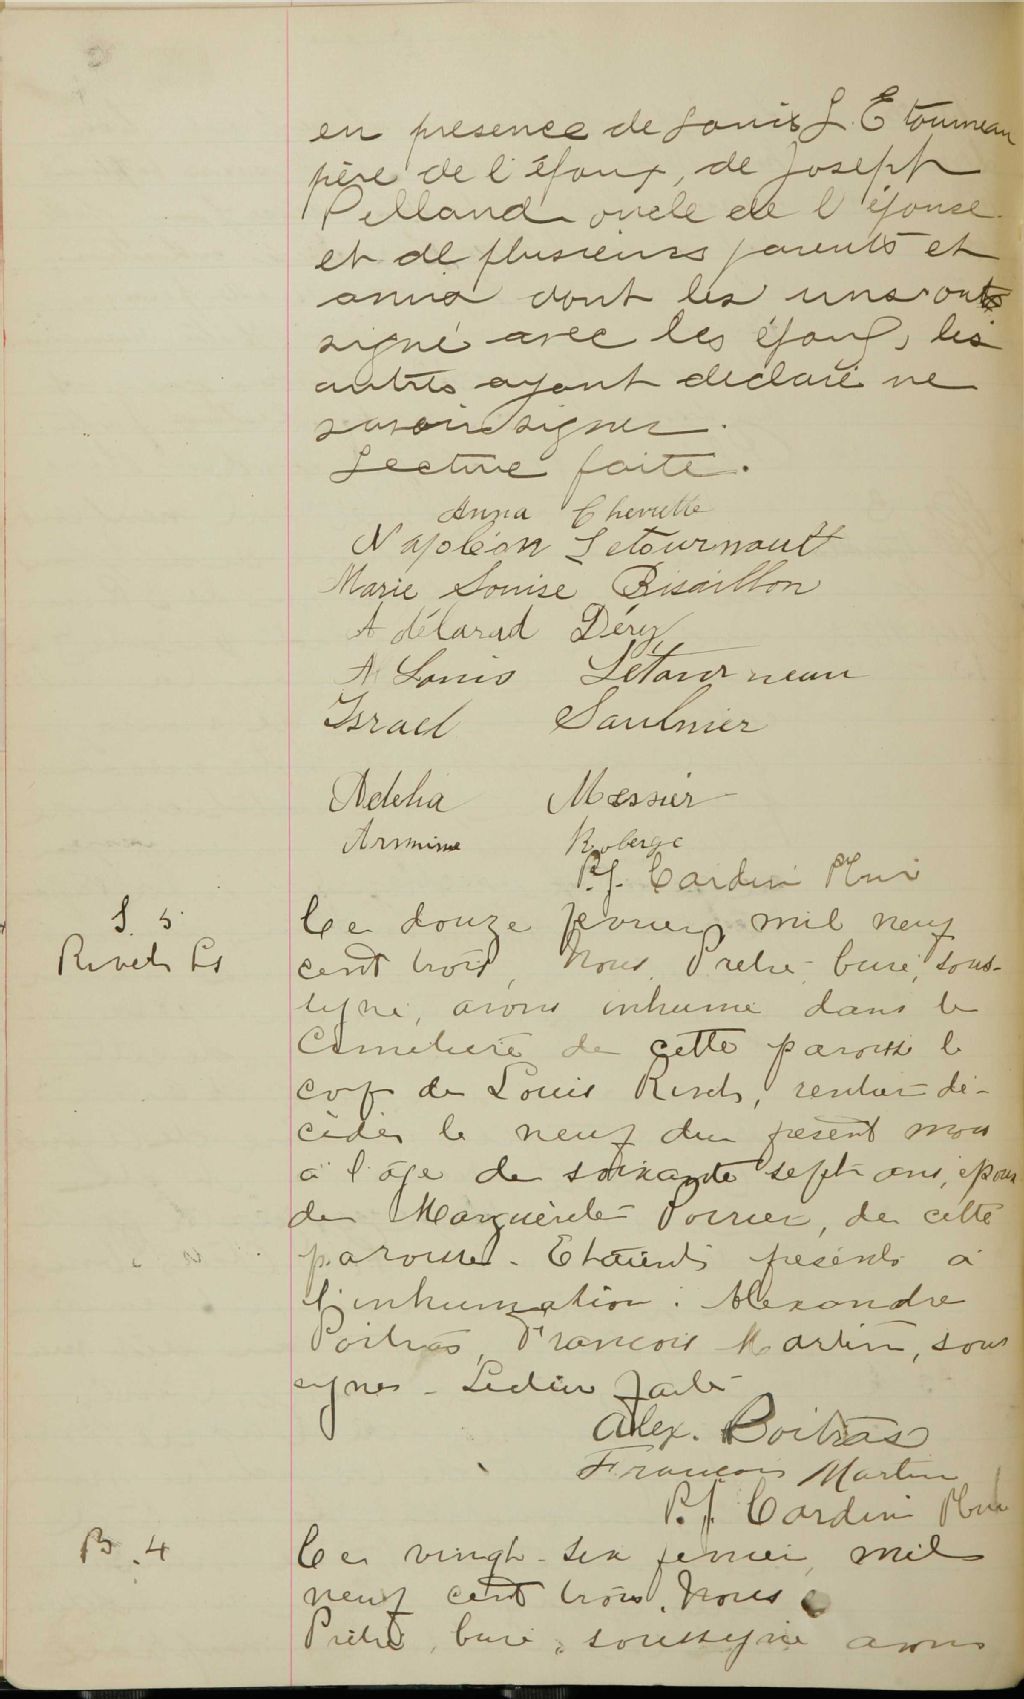 en presence de Louis L. Etourneau
père de l'époux, de Joseph
Pelland oncle de l'épouse
et de plusieurs parents et
amis dont les uns ont
signé avec les époux, les
autres ayant déclaré ne
savoir signer.
Lecture faite.
Anna Chevrette
Napoléon Letournault
Marie Louise Bisaillon
Adélarad Déry
A Louis Letourneau
Israel Saulnier
Adelia Messier
Armine Roberge
P.J. Cardin Ptre
S. 5
Rivets Ls
Ce douze fevrier mil neuf
cent trois, Nous Pretre, curé, sous-
signé, avons inhumé dans le
Cimetière de cette paroisse le
corps de Louis Rivets, rentier dé-
cédé le neuf du présent mois
à l'âge de soixante sept ans, époux
de Marguerite Poirier, de cette
paroisse. Etaient présents à
l'inhumation : Alexandre
Poitras, François Martin, sous
signés - Lecture faite
Alex. Poitras
Francois Martin
P.J. Cardin Ptre
B. 4
Ce vingt-six fevrier, mil
neuf cent trois. Nous
Prêtre, curé, soussigné avons